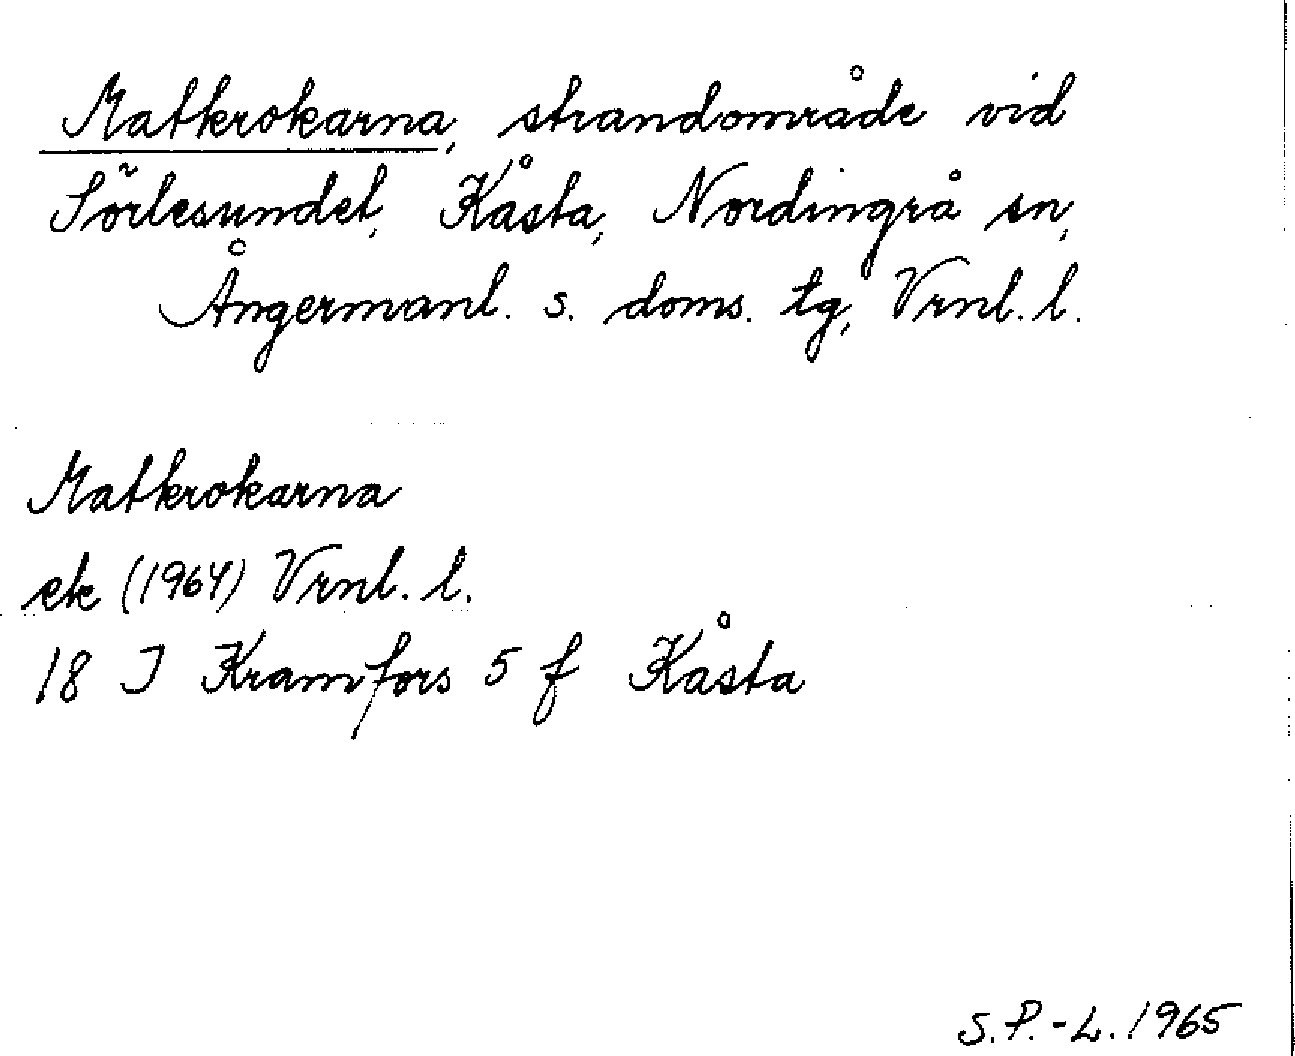 Matkrokarna, strandområde vid
Sörlesundet, Kåsta, Nordingrå sn,
Ångermanl. s. doms. tg, Vrnl. l.
Matkrokarna
ek (1964) Vrnl. l.
18 I Kramfors 5 f Kåsta
S.P.-L. 1965